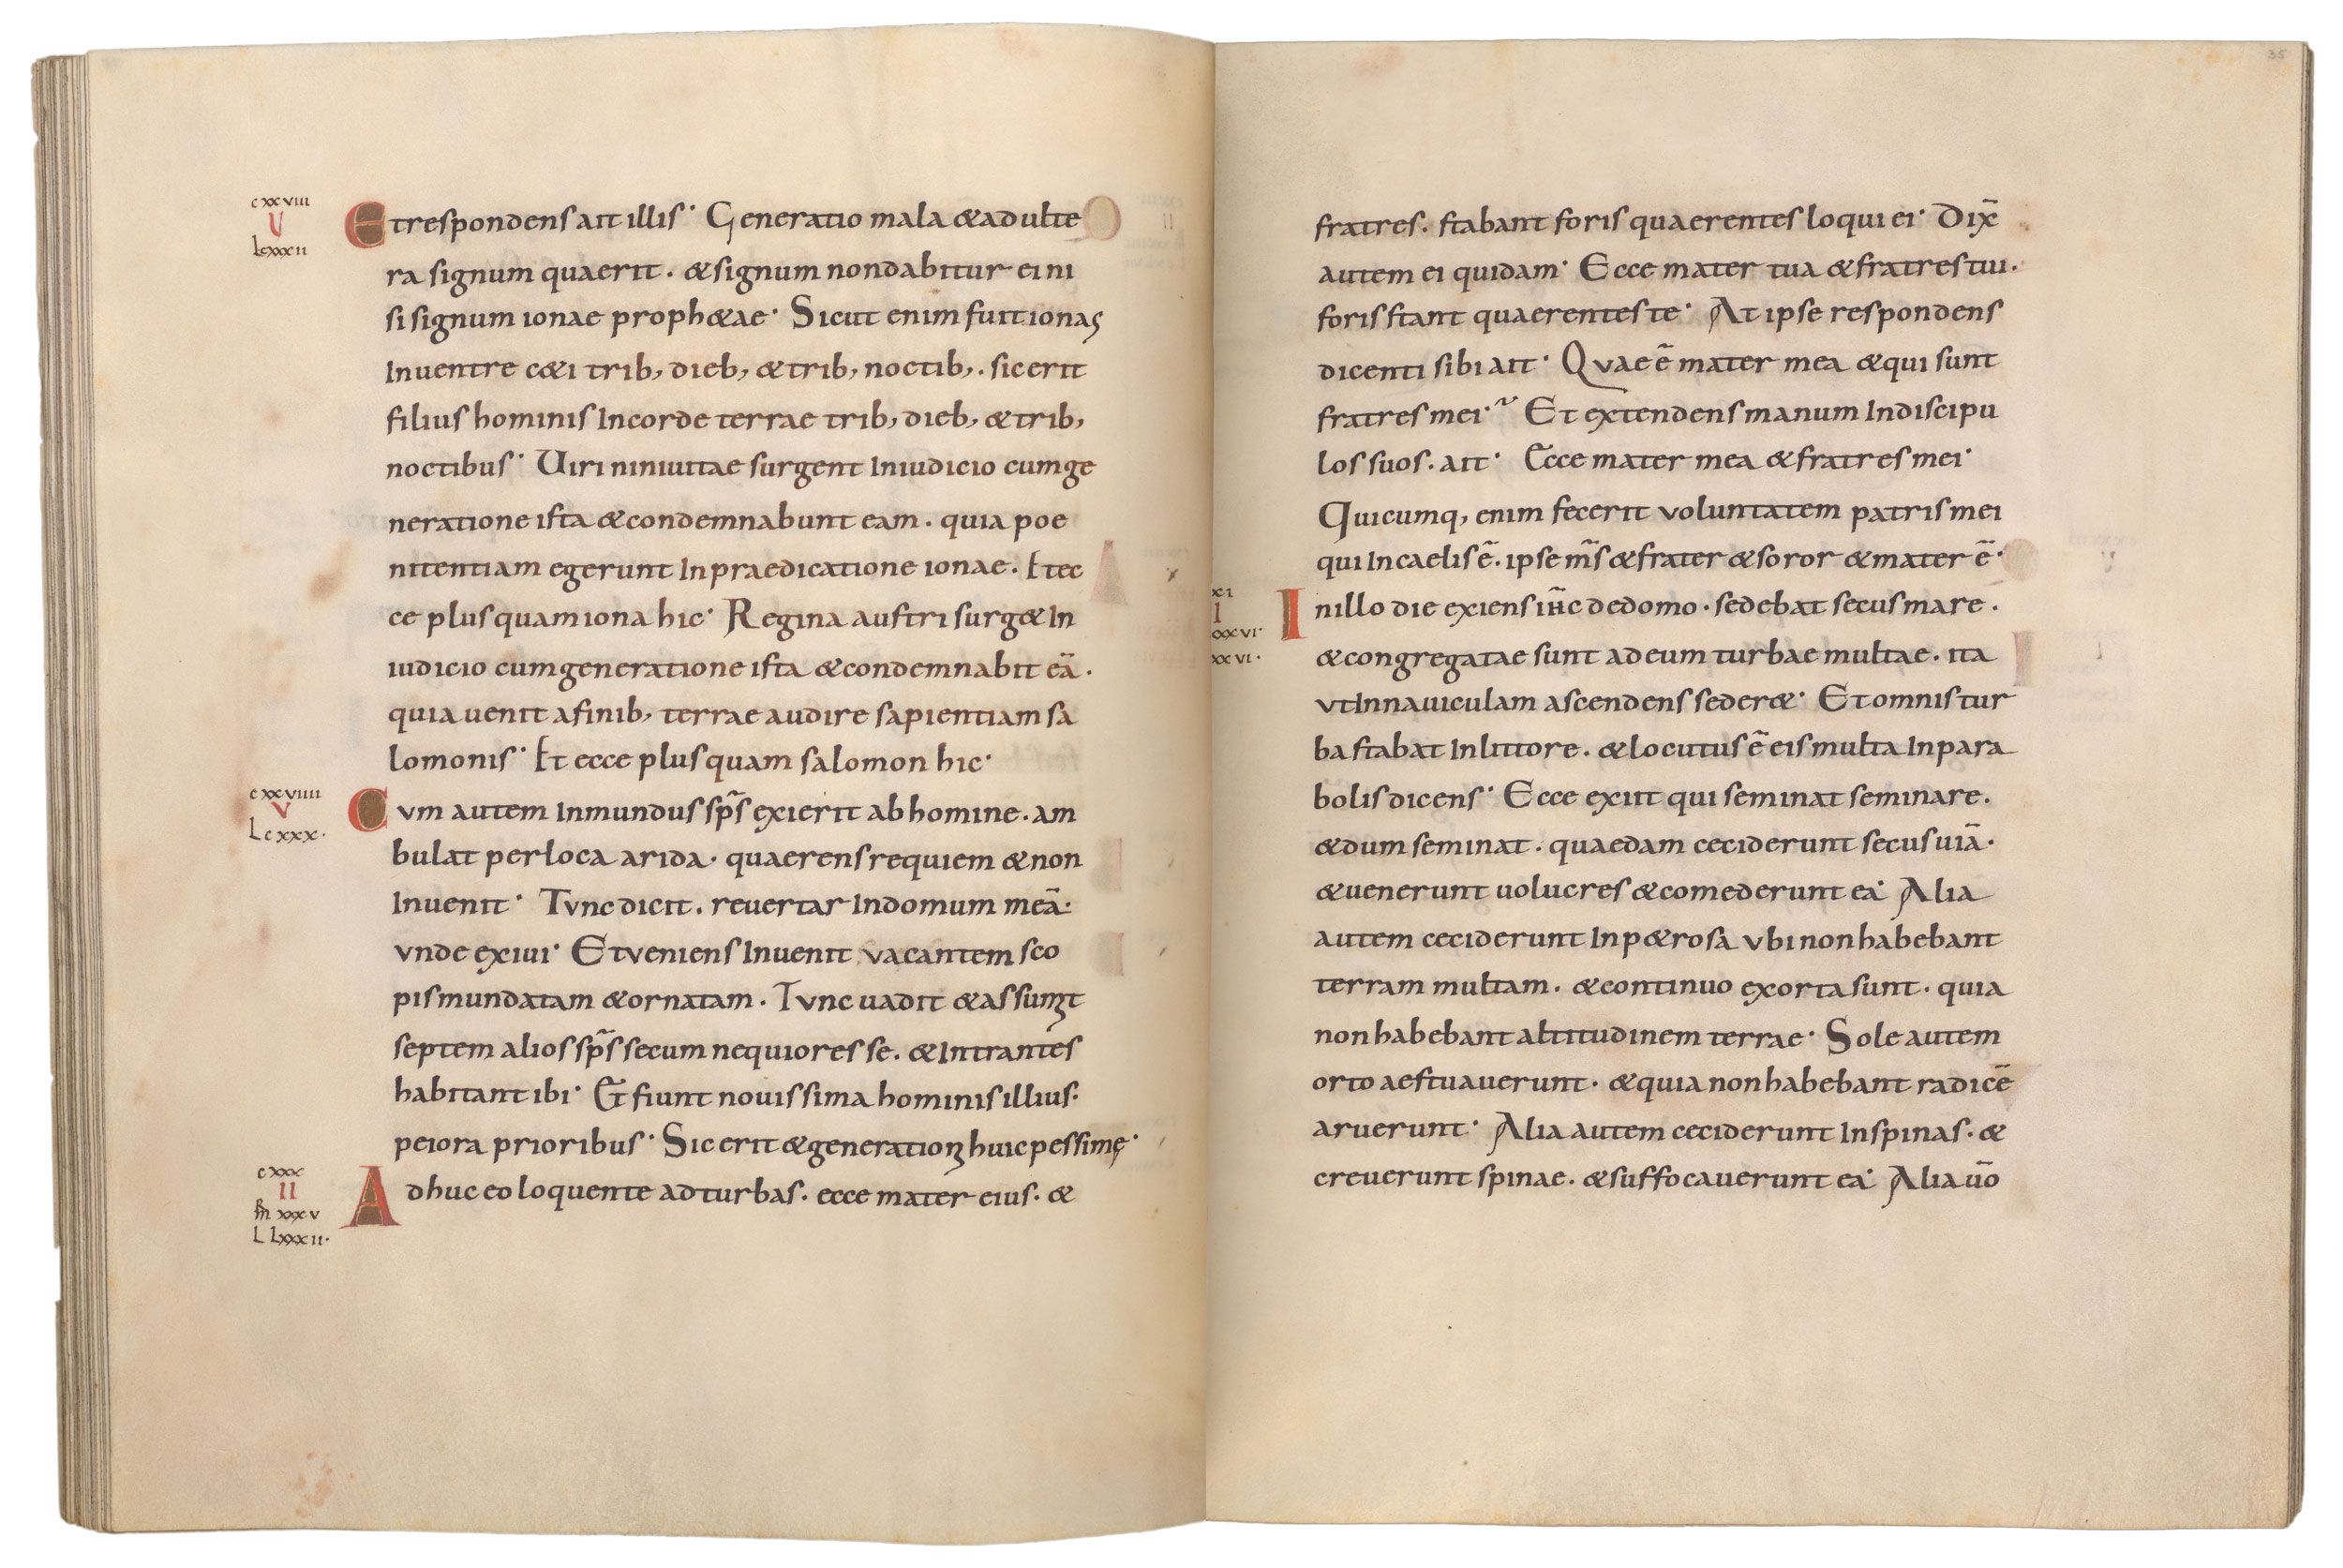 cxxviii
V
Lcxxxii
Et respondens ait illis· Generatio mala & adulte
ra signum quaerit. & signum non dabitur ei ni
si signum ionae proph&ae· Sicut enim fuit ionas
In uentre c&i trib; dieb; & trib; noctib;. sic erit
filius hominis In corde terrae trib; dieb; & trib;
noctibus· Uiri niniuitae surgent In iudicio cum ge
neratione ista & condemnabunt eam. quia poe
nitentiam egerunt In praedicatione ionae. Et ec
ce plus quam iona hic· Regina austri surg& In
iudicio cum generatione ista & condemnabit eā.
quia uenit a finib; terrae audire sapientiam sa
lomonis· Et ecce plus quam salomon hic·
cxxviiii
V
Lcxxx.
Cum autem Inmundus sp̄s exierit ab homine. am
bulat per loca arida. quaerens requiem & non
Inuenit· Tunc dicit. reuertar In domum meā·
vnde exiui· Et veniens Inuenit vacantem sco
pis mundatam & ornatam. Tunc uadit & assumit
septem alios sp̄s secum nequiores se. & Intrantes
habitant ibi· & fiunt nouissima hominis illius.
peiora prioribus· Sic erit & generationi huic pessimę·
cxxx
II
M xxxv
L Lxxxii.
Adhuc eo loquente ad turbas. ecce mater eius. &
35
fratres. stabant foris quaerentes loqui ei· Dix̄
autem ei quidam· Ecce mater tua & fratres tui.
foris stant quaerentes te· At ipse respondens
dicenti sibi ait· Quae ē mater mea & qui sunt
fratres mei· Et extendens manum In discipu
los suos. ait· Ecce mater mea & fratres mei·
Quicumq; enim fecerit voluntatem patris mei
qui In caelis ē. ipse m̄s & frater & soror & mater ē·
xi
I
xxvi·
xxvi·
In illo die exiens ih̄c de domo. sedebat secus mare.
& congregatae sunt ad eum turbae multae. ita
vt In nauiculam ascendens seder&· Et omnis tur
ba stabat In littore. & locutus ē eis multa In para
bolis dicens· Ecce exiit qui seminat seminare.
& dum seminat. quaedam ceciderunt secus uiā.
& uenerunt uolucres & comederunt ea· Alia
autem ceciderunt In p&rosa vbi non habebant
terram multam. & continuo exorta sunt. quia
non habebant altitudinem terrae· Sole autem
orto aestuauerunt. & quia non habebant radicē
aruerunt· Alia autem ceciderunt In spinas. &
creuerunt spinae. & suffocauerunt ea· Alia ūo